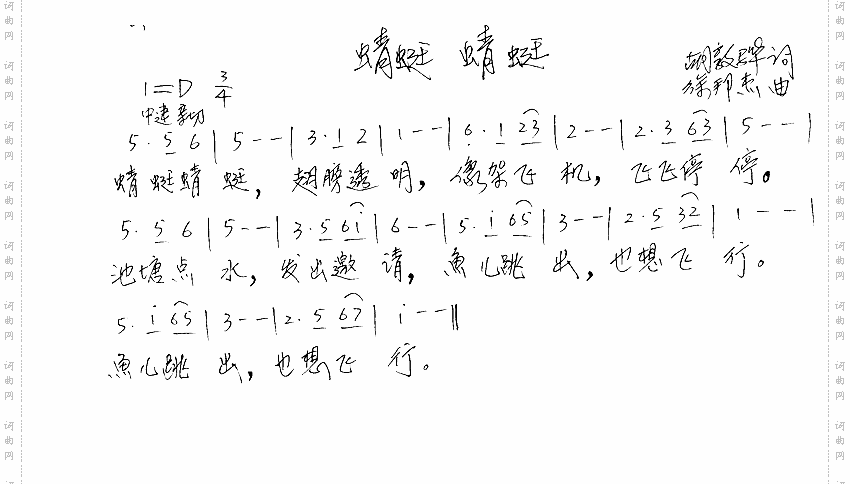 蜻蜓 蜻蜓
1=D 3/4
中速 亲切
胡敦骅 词
徐邦杰 曲
5· 5 6 | 5 - - | 3· 1 2 | 1 - - | 6̣· 1 23 | 2 - - | 2· 3 63 | 5 - - |
蜻蜓蜻蜓，翅膀透明，像架飞机，飞飞停停。
5· 5 6 | 5 - - | 3· 5 6i | 6 - - | 5· i 65 | 3 - - | 2· 5 32 | 1 - - |
池塘点水，发出邀请，魚儿跳出，也想飞行。
5· i 65 | 3 - - | 2· 5 67 | i - - ‖
魚儿跳出，也想飞行。
词曲网
词曲网
词曲网
词曲网
词曲网
词曲网
词曲网
词曲网
词曲网
词曲网